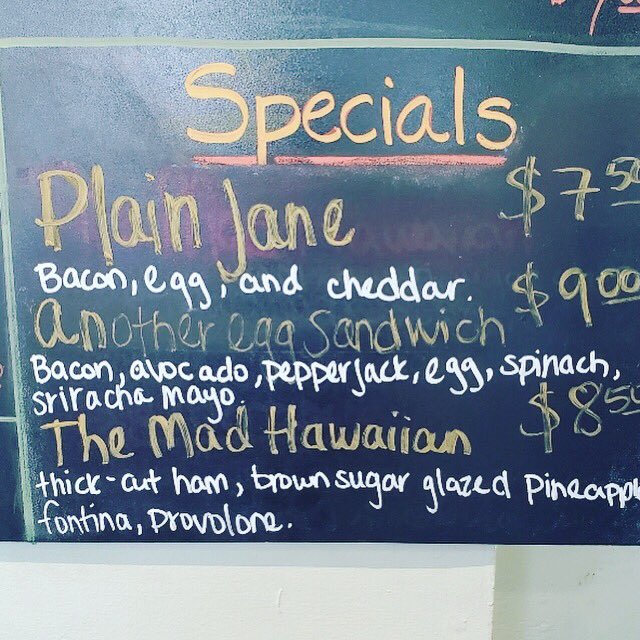 Specials
Plain Jane $7.50
Bacon, egg, and cheddar.
another egg Sandwich $9.00
Bacon, avocado, pepperjack, egg, spinach,
sriracha mayo.
The Mad Hawaiian $8.50
thick-cut ham, brown sugar glazed pineappl
fontina, provolone.